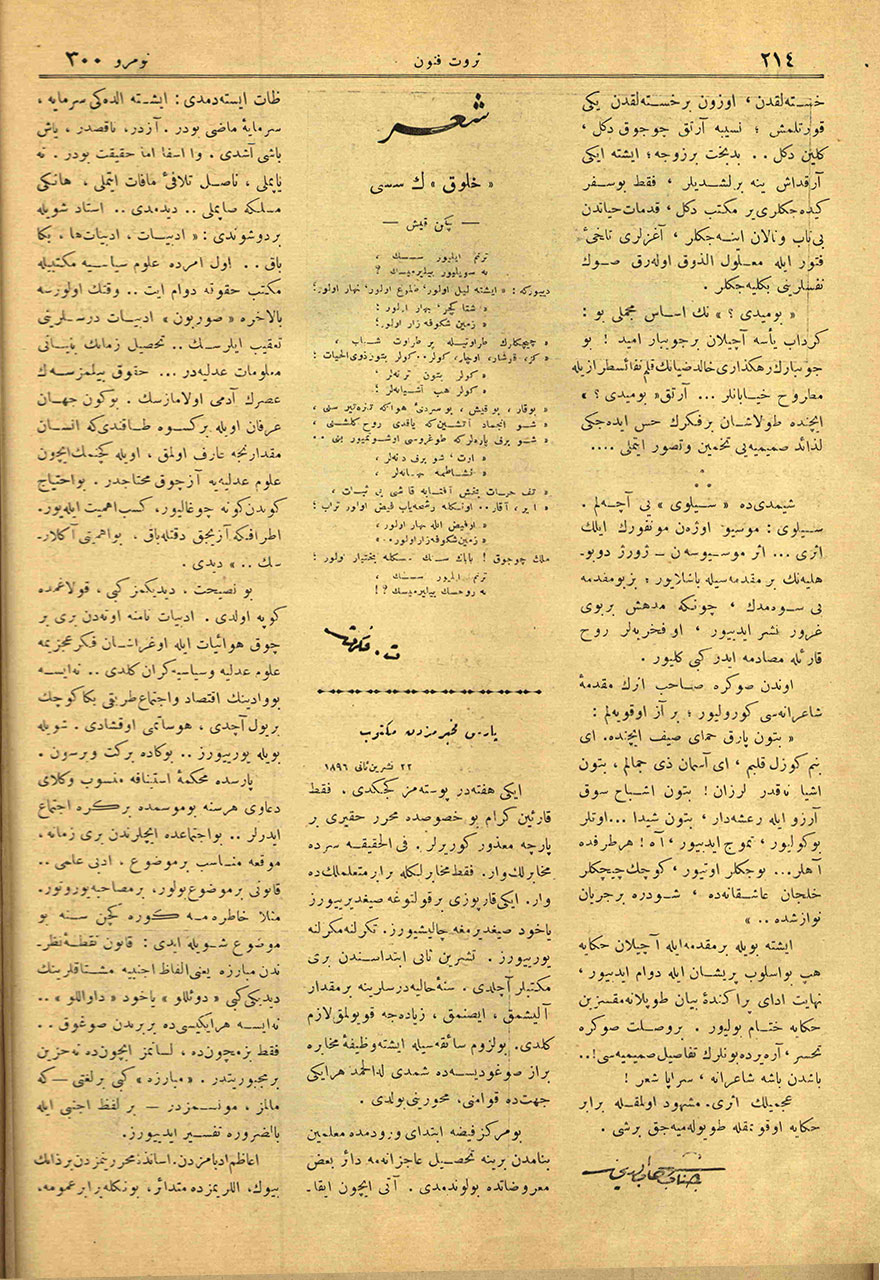 ٢١٤
ثروت فنون
نومرو ٣٠٠
خسته‌لقدن ، اوزون برخسته‌لقدن یکی
قورتلمش ؛ نسبیه آرتق چوجوق دکل ،
کلین دکل . . بدبخت برزوجه ؛ ایشته ایکی
آرقداش ینه برلشدیلر ، فقط بوسفر
کیده‌جکلری بر مکتب دکل ، قدمات حیاتدن
بی‌تاب ونالان اینه‌جکلر ، آغزلری تلخئ
فتور ایله معلول الذوق اوله‌رق صوك
نفسلرینی بکلیه‌جکلر .
« بومیدی ؟ » نك اساس مجملی بو :
کرداب یأسه آچیلان برجویبار امید ! بو
جویبارك رهکذاری خالد ضیانك قلم نفائسطرازیله
مطروح خیابانلر ... آرتق « بومیدی ؟ »
ایچنده طولاشان برفکرك حس ایده‌جکی
لذائد صمیمیه‌یی تخمین وتصور ایتملی ....
شیمدی‌ده « سیلوی » یی آچه‌لم .
سیلوی : موسیو اوژه‌ن مونفورك ایلك
اثری ... اثر موسیوسه‌ن - ژورژ دوبو-
هلیه‌نك بر مقدمه‌سیله باشلایور ؛ بز بومقدمه
یی سومه‌دك ، چونکه مدهش بربوی
غرور نشر ایدییور ، او فخریه‌لر روح
قارئله مصادمه ایدر کبی کلیور .
اوندن صوکره صاحب اثرك مقدمۀ
شاعرانه‌سی کورولیور ؛ بر آز اوقویه‌لم :
« بتون پارق حمای صیف ایچنده . ای
بنم کوزل قلبم ، ای آسمان ذی جمالم ، بتون
اشیا نه‌قدر لرزان ! بتون اشباح سوق
آرزو ایله رعشه‌دار ، بتون شیدا ... اوتلر
بوکولیور ، تموج ایدییور ، آه ! هر طرفده
آهلر... بوجکلر اوتیور ، کوچك چیچکلر
خلجان عاشقانه‌ده ، شودره برجریان
نوازشده . . »
ایشته بویله برمقدمه‌ایله آچیلان حکایه
هپ بواسلوب پریشان ایله دوام ایدییور ،
نهایت ادای پراکندۀ بیان طوپلانه‌مقسزین
حکایه ختام بولیور . بروصلت صوکره
تحسر ، آره‌یرده بونلرك تفاصیل صمیمیه‌سی !..
باشدن باشه شاعرانه ، سراپا شعر !
عجمیلك اثری . مشهود اولمقله برابر
حکایه اوقونمقله طویوله‌میه‌جق برشی .
جناب شهاب‌الدین
شعر
« خلوق » ك سسی
— یکن قیش —
ترنم ایلیور سسك ،
نه سویلیور بیلیرمیسك ؟
دییورکه : « ایشته لیل اولور ، طلوع اولور ، نهار اولور ؛
« شتا کچر ، بهار اولور :
« زمین شکوفه‌زار اولور ؛
« چیچکلرك طراوتیله پر طراوت شباب ،
« کولر بتون ترنه‌لر ،
« کولر هپ آشیانه‌لر !
« بوقار ، بوقیش ، بوسردئ هواکه تتره‌تیر سنی ،
« ارت ، شو برفی دنه‌لر ،
« نشاطمه بهانه‌لر ،
« اوفیض ایله بهار اولور ،
« زمین شکوفه‌زار اولور . »
ملك چوجوق ! بابك سنك سسکله بختیار اولور :
ترنم ایلیور سسك ،
نه روحسك بیلیرمیسك ؟!
ت . فکرت
پارس مخبرمزدن مکتوب
٢٢ تشرین ثانی ١٨٩٦
ایکی هفته‌در پوسته‌مز کجیکدی . فقط
قارئین کرام بو خصوصده محرر حقیری بر
پارچه معذور کوریرلر . فی الحقیقه سرده
مخابرلك وار . فقط مخابرلکله برابر متعلملك‌ده
وار. ایکی قارپوزی برقولتوغه صیغدیرییورز
یاخود صیغدیرمغه چالیشییورز . تکرلنه مکرلنه
یورییورز . تشرین ثانی ابتداسندن بری
مکتبلر آچلدی . سنۀ حالیه درسلرینه برمقدار
آلیشمق ، ایصنمق ، زیاده‌جه قویولمق لازم
کلدی. بولزوم سائقه‌سیله ایشته وظیفۀ مخابره
براز صوغودیسه‌ده شمدی له‌الحمد هر ایکی
جهت‌ده قوامنی ، محورینی بولدی .
بو مرکز فیضه ابتدای ورودمده معلمین
بنامدن برینه تحصیل عاجزانه‌مه دائر بعض
معروضاتده بولوندمدی . آتی ایچون ایقا-
ظات ایسته‌دمدی : ایشته الده‌کی سرمایه ،
سرمایۀ ماضی بودر . آزدر ، ناقصدر ، یاش
باشی آشدی . وا اسفا اما حقیقت بودر . نه
یاپملی ، ناصل تلافئ مافات ایتملی ، هانکی
مسلکه صاپملی . . دیدمدی . . استاد شویله
بر دوشوندی : « ادبیات ، ادبیات‌ها ، بکا
باق . . اول امرده علوم سیاسیه مکتبیله
مکتب حقوقه دوام ایت . . وقتك اولورسه
بالاخره « صوربون » ادبیات درسلرینی
تعقیب ایلرسك .. تحصیل زمانك بنیانی
معلومات عدلیه‌در ... حقوق بیلمزسه‌ك
عصرك آدمی اولامازسك . بوکون جهان
عرفان اویله برکسوه طاقندی که انسان
مقدارنجه عارف اولمق ، اویله کچنمك ایچون
علوم عدلیه‌یه آز چوق محتاجدر . بواحتیاج
کوندن کونه چوغالیور ، کسب اهمیت ایله‌یور.
اطرافکه آزیجق دقتله باق . بواهمیتی آکلار-
سك . . » دیدی .
بو نصیحت ، دیدیکمز کبی ، قولاغمده
کوپه اولدی . ادبیات نامنه اوته‌دن بری بر
چوق هوائیات ایله اوغراشان فکر عجزیمه
علوم عدلیه وسیاسیه کران کلدی . . نه‌ایسه
بووادینك اقتصاد واجتماع طریقی بکا کوچك
بریول آچدی ، هوساتمی اوقشادی . شویله
بویله یورییورز . . بوکاده برکت ویرسون .
پارسده محکمۀ استینافه منسوب وکلای
دعاوی هرسنه بوموسمده برکره اجتماع
ایدرلر . . بواجتماعده ایچلرندن بری زمانه ،
موقعه مناسب برموضوع ، ادبی علمی . .
قانونی برموضوع بولور ، برمصاحبه یورتور.
مثلا خاطرمه کوره کچن سنه بو
موضوع شویله ایدی : قانون نقطۀ نظر-
ندن مبارزه یعنی الفاظ اجنبیه مشتاقلرینك
دیدیکی کبی « دوئللو » یاخود « داواللو » . .
نه‌ایسه هرایکیسی‌ده بربرندن صوغوق . .
فقط بزمچون‌ده ، لسانمز ایچون‌ده نه‌حزین
برمجبوریتدر . « مبارزه » کبی برلغتی — که
مالمز ، مونسمزدر — بر لفظ اجنبی ایله
بالضروره تفسیر ایدییورز.
اعاظم ادبامزدن . اساتذۀ محررینمزدن برذاتك
بیوك، اللریمزده متدائر، بونکله برابر عمومه ،